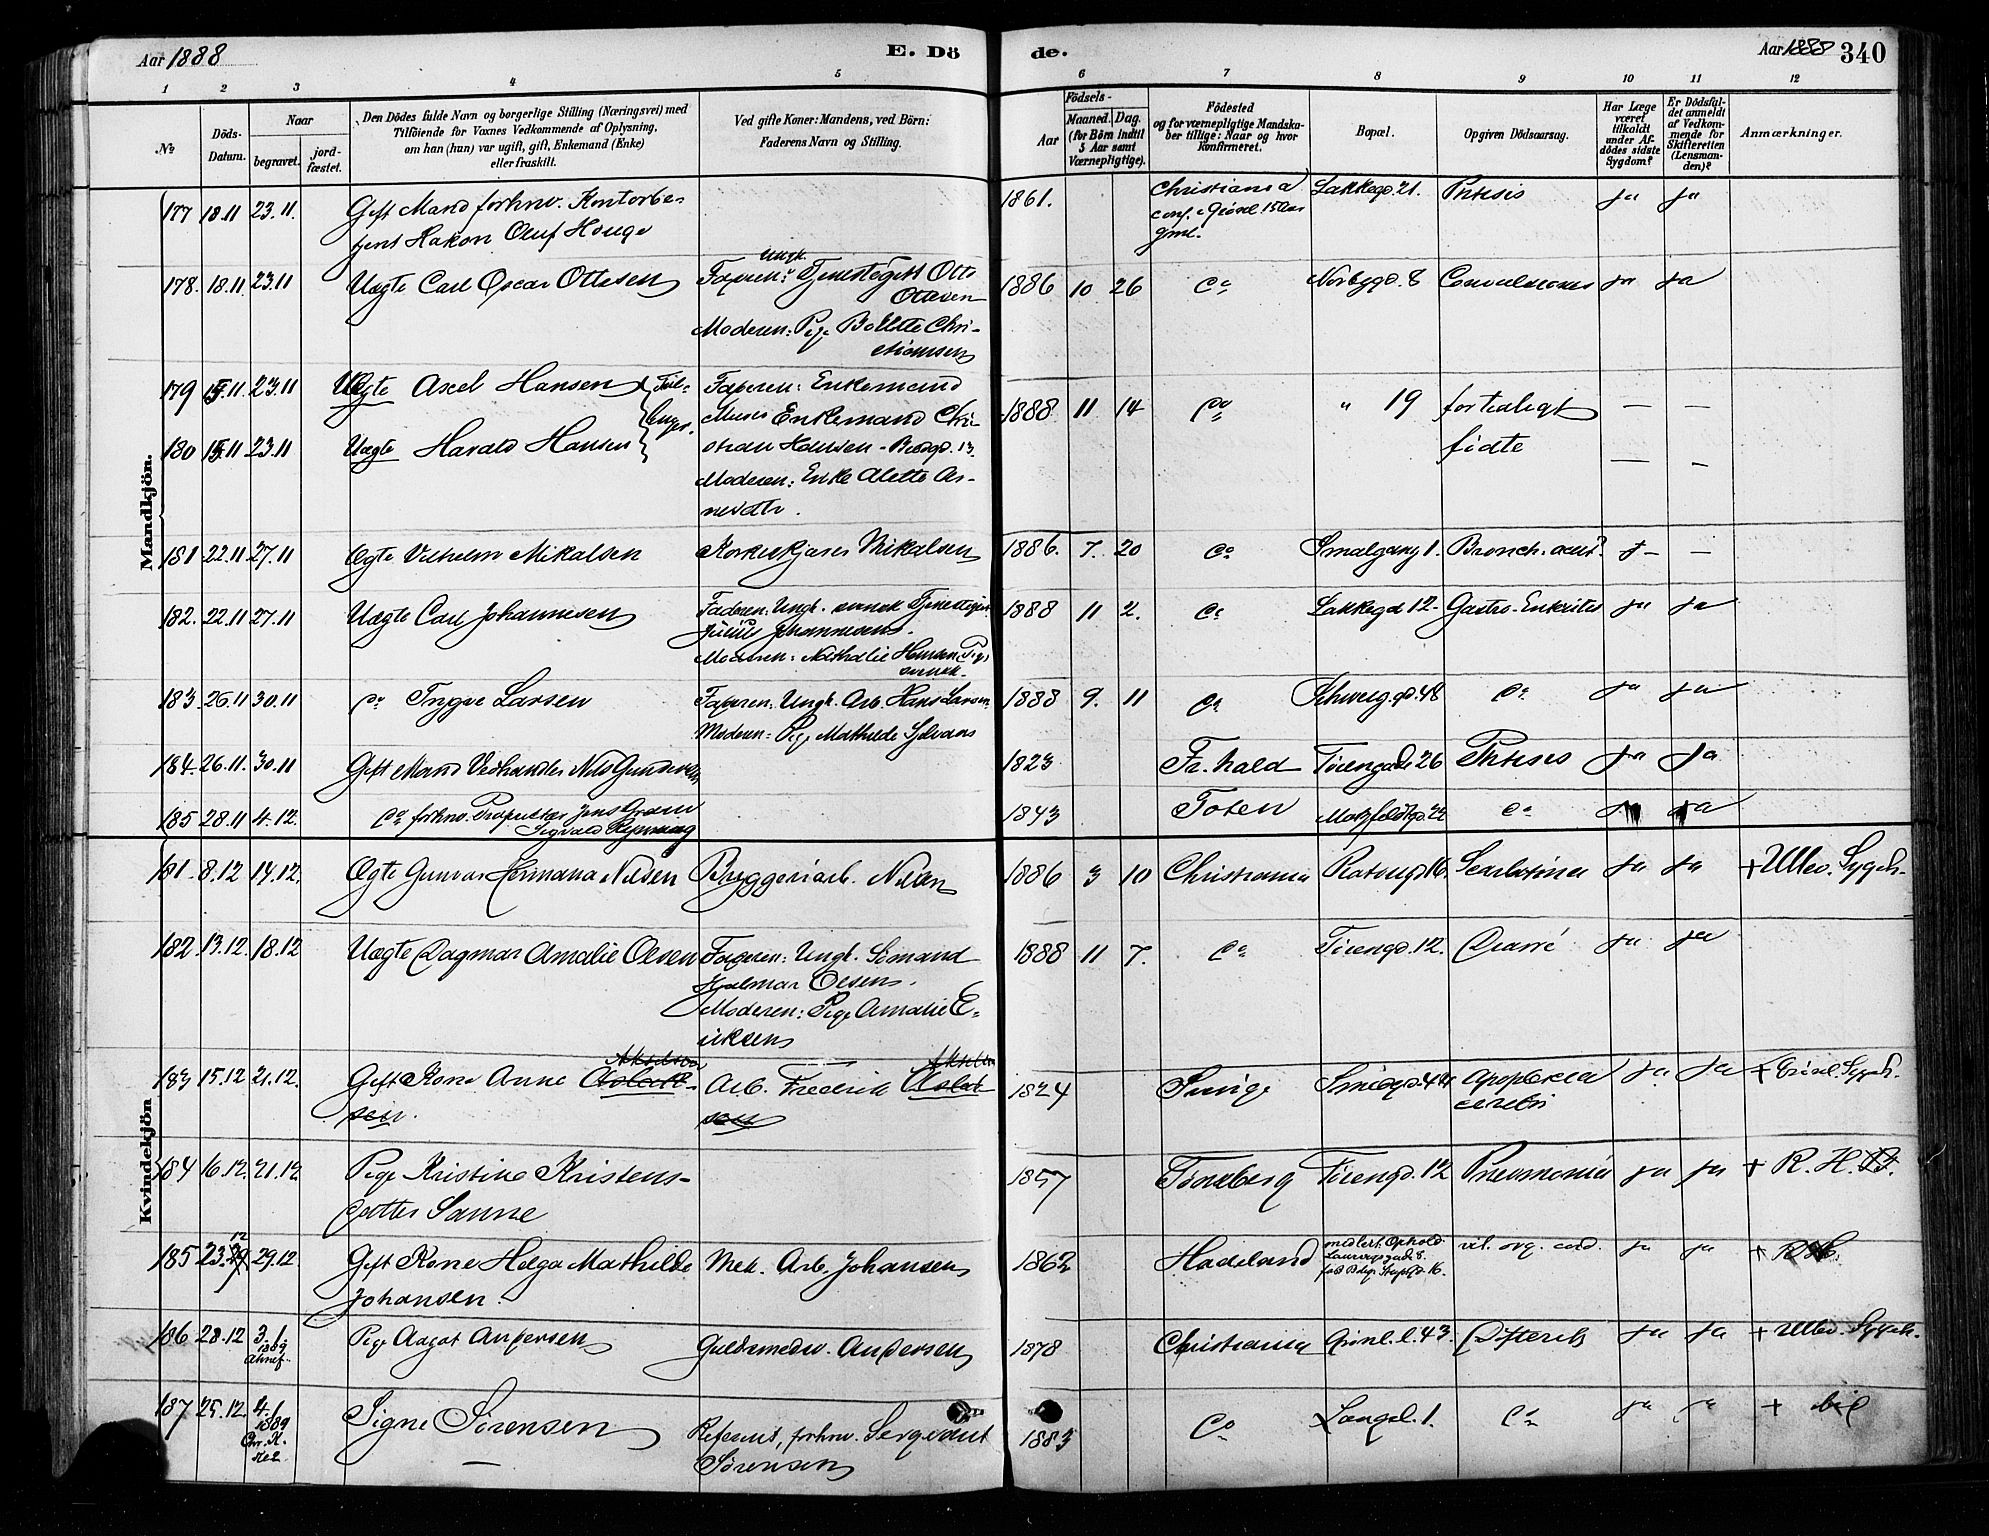 Aar 1888
E. Dö
de.
Aar 1888
340
1 2 3 4 5 6 7 8 9 10 11 12
No
Döds-Datum.
Naar
begravet.
jord-fæstet.
Den Dödes fulde Navn og borgerlige Stilling (Næringsvei) med
Tilföiende for Voxnes Vedkommende af Oplysning,
om han (hun) var ugift, gift, Enkemand (Enke)
eller fraskilt.
Ved gifte Koner: Mandens, ved Börn:
Faderens Navn og Stilling.
Födsels-
Aar
Maaned. Dag.
(for Börn indtil
5 Aar samt
Værnepligtige).
Födested
og for værnepligtige Mandska-
ber tillige: Naar og hvor
konfirmeret.
Bopæl.
Opgiven Dödsaarsag.
Har Læge
været
tilkaldt
under Af-
dödes sidste
Sygdom?
Er Dödsfal-
det anmeldt
af Vedkom-
mende for
Skifteretten
(Lensman-
den)?
Anmærkninger.
Mandkjön.
177 18.11 23.11. Gift Mand forhnv. Kontorbe- 1861. Christiania Lakkegd. 21. Phtisis ja ja
tjent Hakon Oluf Hauge
conf. i Grönl. 15 Aar
gml.
178. 18.11 23.11 Uægte Carl Oscar Ottesen Faderen: Ungk. Tjenestegutt Otto 1886 10 26 do Norbygd. 8 Convulsiones ja ja
Ottesen
Moderen: Pige Bollette Chri-
stiansen
179 15.11 23.11 Uægte Axel Hansen Faderen: Enkemand 1888 11 14 do " 19 fortidligt — —
Tvil-
linger.
Enkemand Chri-
180 15.11 23.11 Uægte Harald Hansen stian Hansen - 13. fødte — —
Moderen: Enke Alette Ar-
181 22.11 27.11 Ægte Vilhelm Mikalsen Mikalsen 1886. 7. 20 do Smalgang 1. Bronch. acut. j— —
182. 22.11 27.11 Uægte Carl Johannesen Faderen: Ungk. svensk Tjenestegut 1888 11 2. do Lakkegd. 12 - Gastro-Enterites ja ja
Julius Johannesen.
Moderen: Nathalie Hansen, Pige
svensk.
183. 26.11 30.11 do Trygve Larsen Faderen: Ungk. Arb. Hans Larsen 1888 9. 11 do Schweig. gd. 48 do ja ja
Moderen: Pige Mathilde
184. 26.11. 30.11 Gift Mand Vedhandler Nils Gundersen 1823 Fr.hald Töiengade 26 Phtisis ja ja
185 28.11 4.12. do forhnv. Jens 1843 Toten Motzfeldtgd. 22 do ja ja
Sigvald
Kvindekjön
181. 8.12 14.12. Ægte Gunvor Hermana Nilsen Bryggeriarb. Nilsen 1886 3 10 Christiania 16. Scarlatina ja ja + Ullev. Sygeh.
182 13.12. 18.12 Uægte Dagmar Amalie Olsen Faderen: Ungk. Sömand 1888 11 7. do Töiengd. 12. Diarré ja ja
Hjalmar Olsen.
Moderen: Pige Amalie E-
riksen
183 15.12 21.12. Gift Kone Anne Akselsen Arb. Frederik Akselsen 1824 Sverige Smedgd. 44 Apoplexia ja ja + Grönl. Sygeh.
sen. sen cerebri
184 16.12. 21.12 Pige Kristine Kristens- 1857 Tönsberg Töiengd. 12 Pneumonia ja ja + R. H.
datter Sanne
185 23.12 29.12. Gift Kone Helga Mathilde Mek. Arb. Johansen 1862 Hadeland midlert. Ophold vit. org. cord. ja ja +
Johansen.
186 28.12 3.1. 1889 Pige Aagot Andersen Guldsmedsv. Andersen 1878 Christiania Grönl. l. 43. Difterit ja ja + Ullev. Sygeh.
187 25.12. 4.1 1889 Signe Sörensen Referent, forhnv. Sergeant 1883 do Langel. 1. do ja ja +
Sörensen